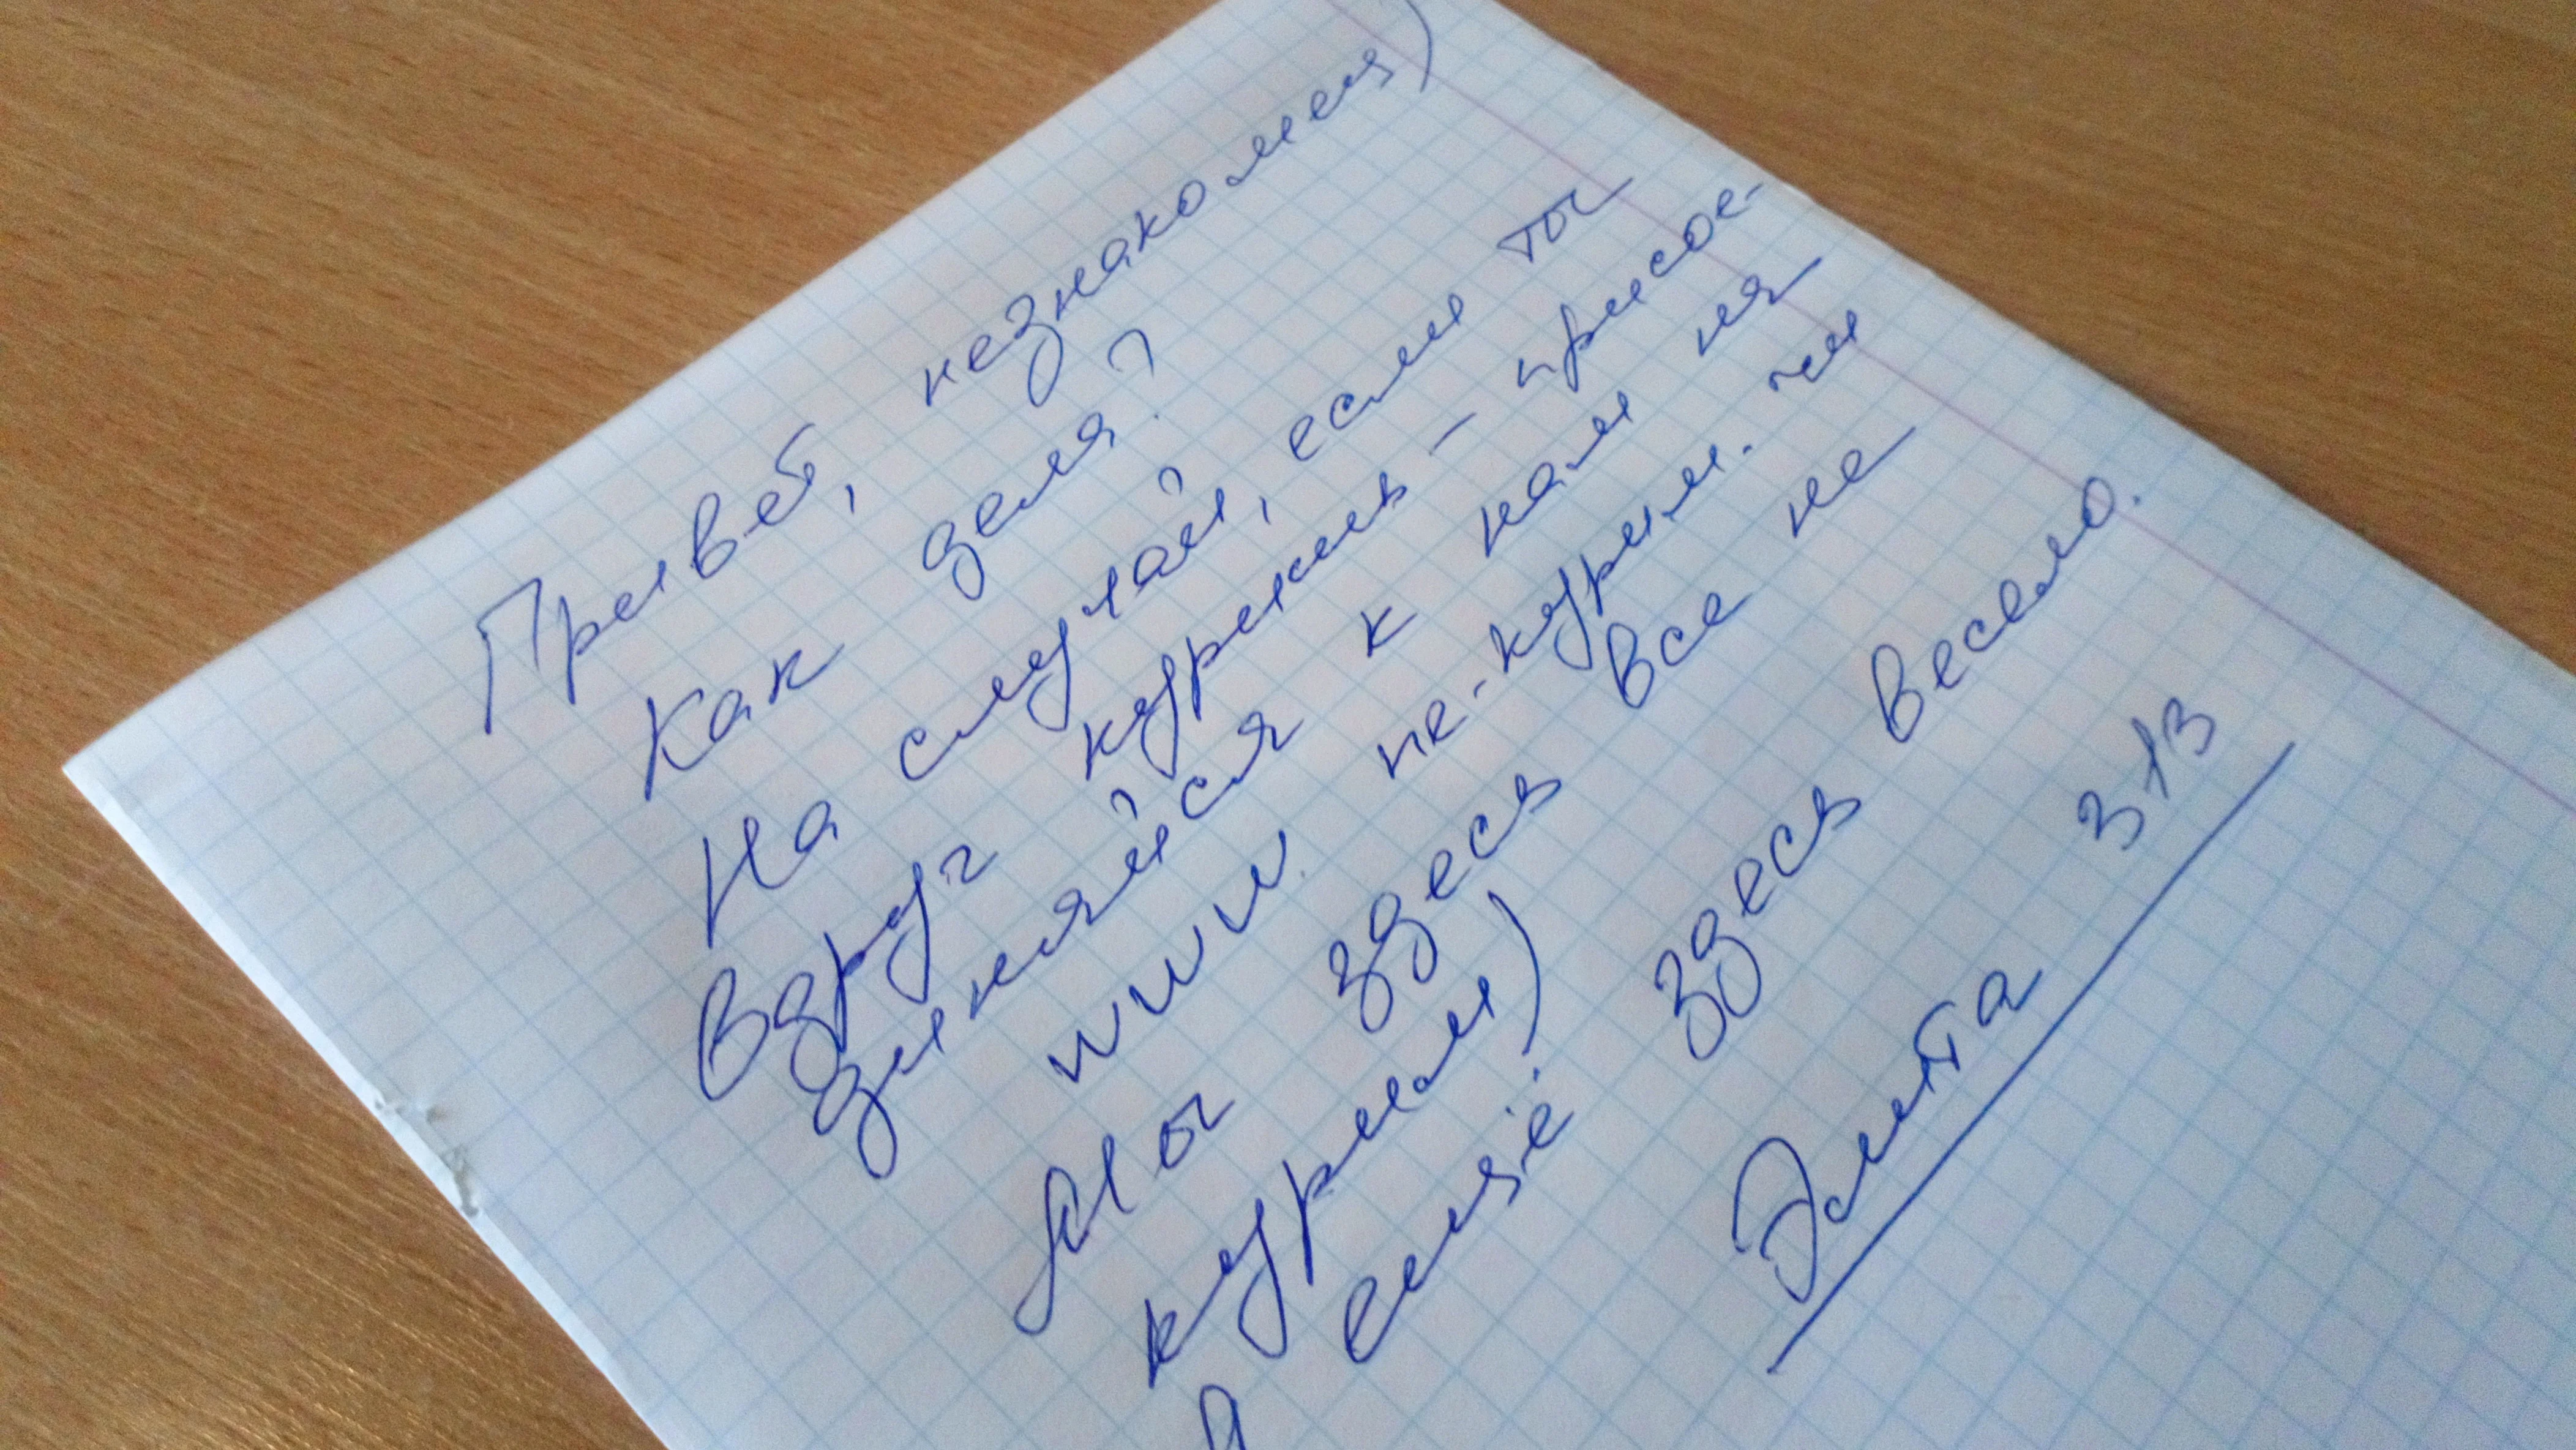 Привет, незнакомец)
Как дела?
На случай, если ты
вдруг куришь - присое-
диняйся к нам на
www.ne-kurim.ru
Мы здесь все не
курим)
А ещё здесь весело.
Элита 313